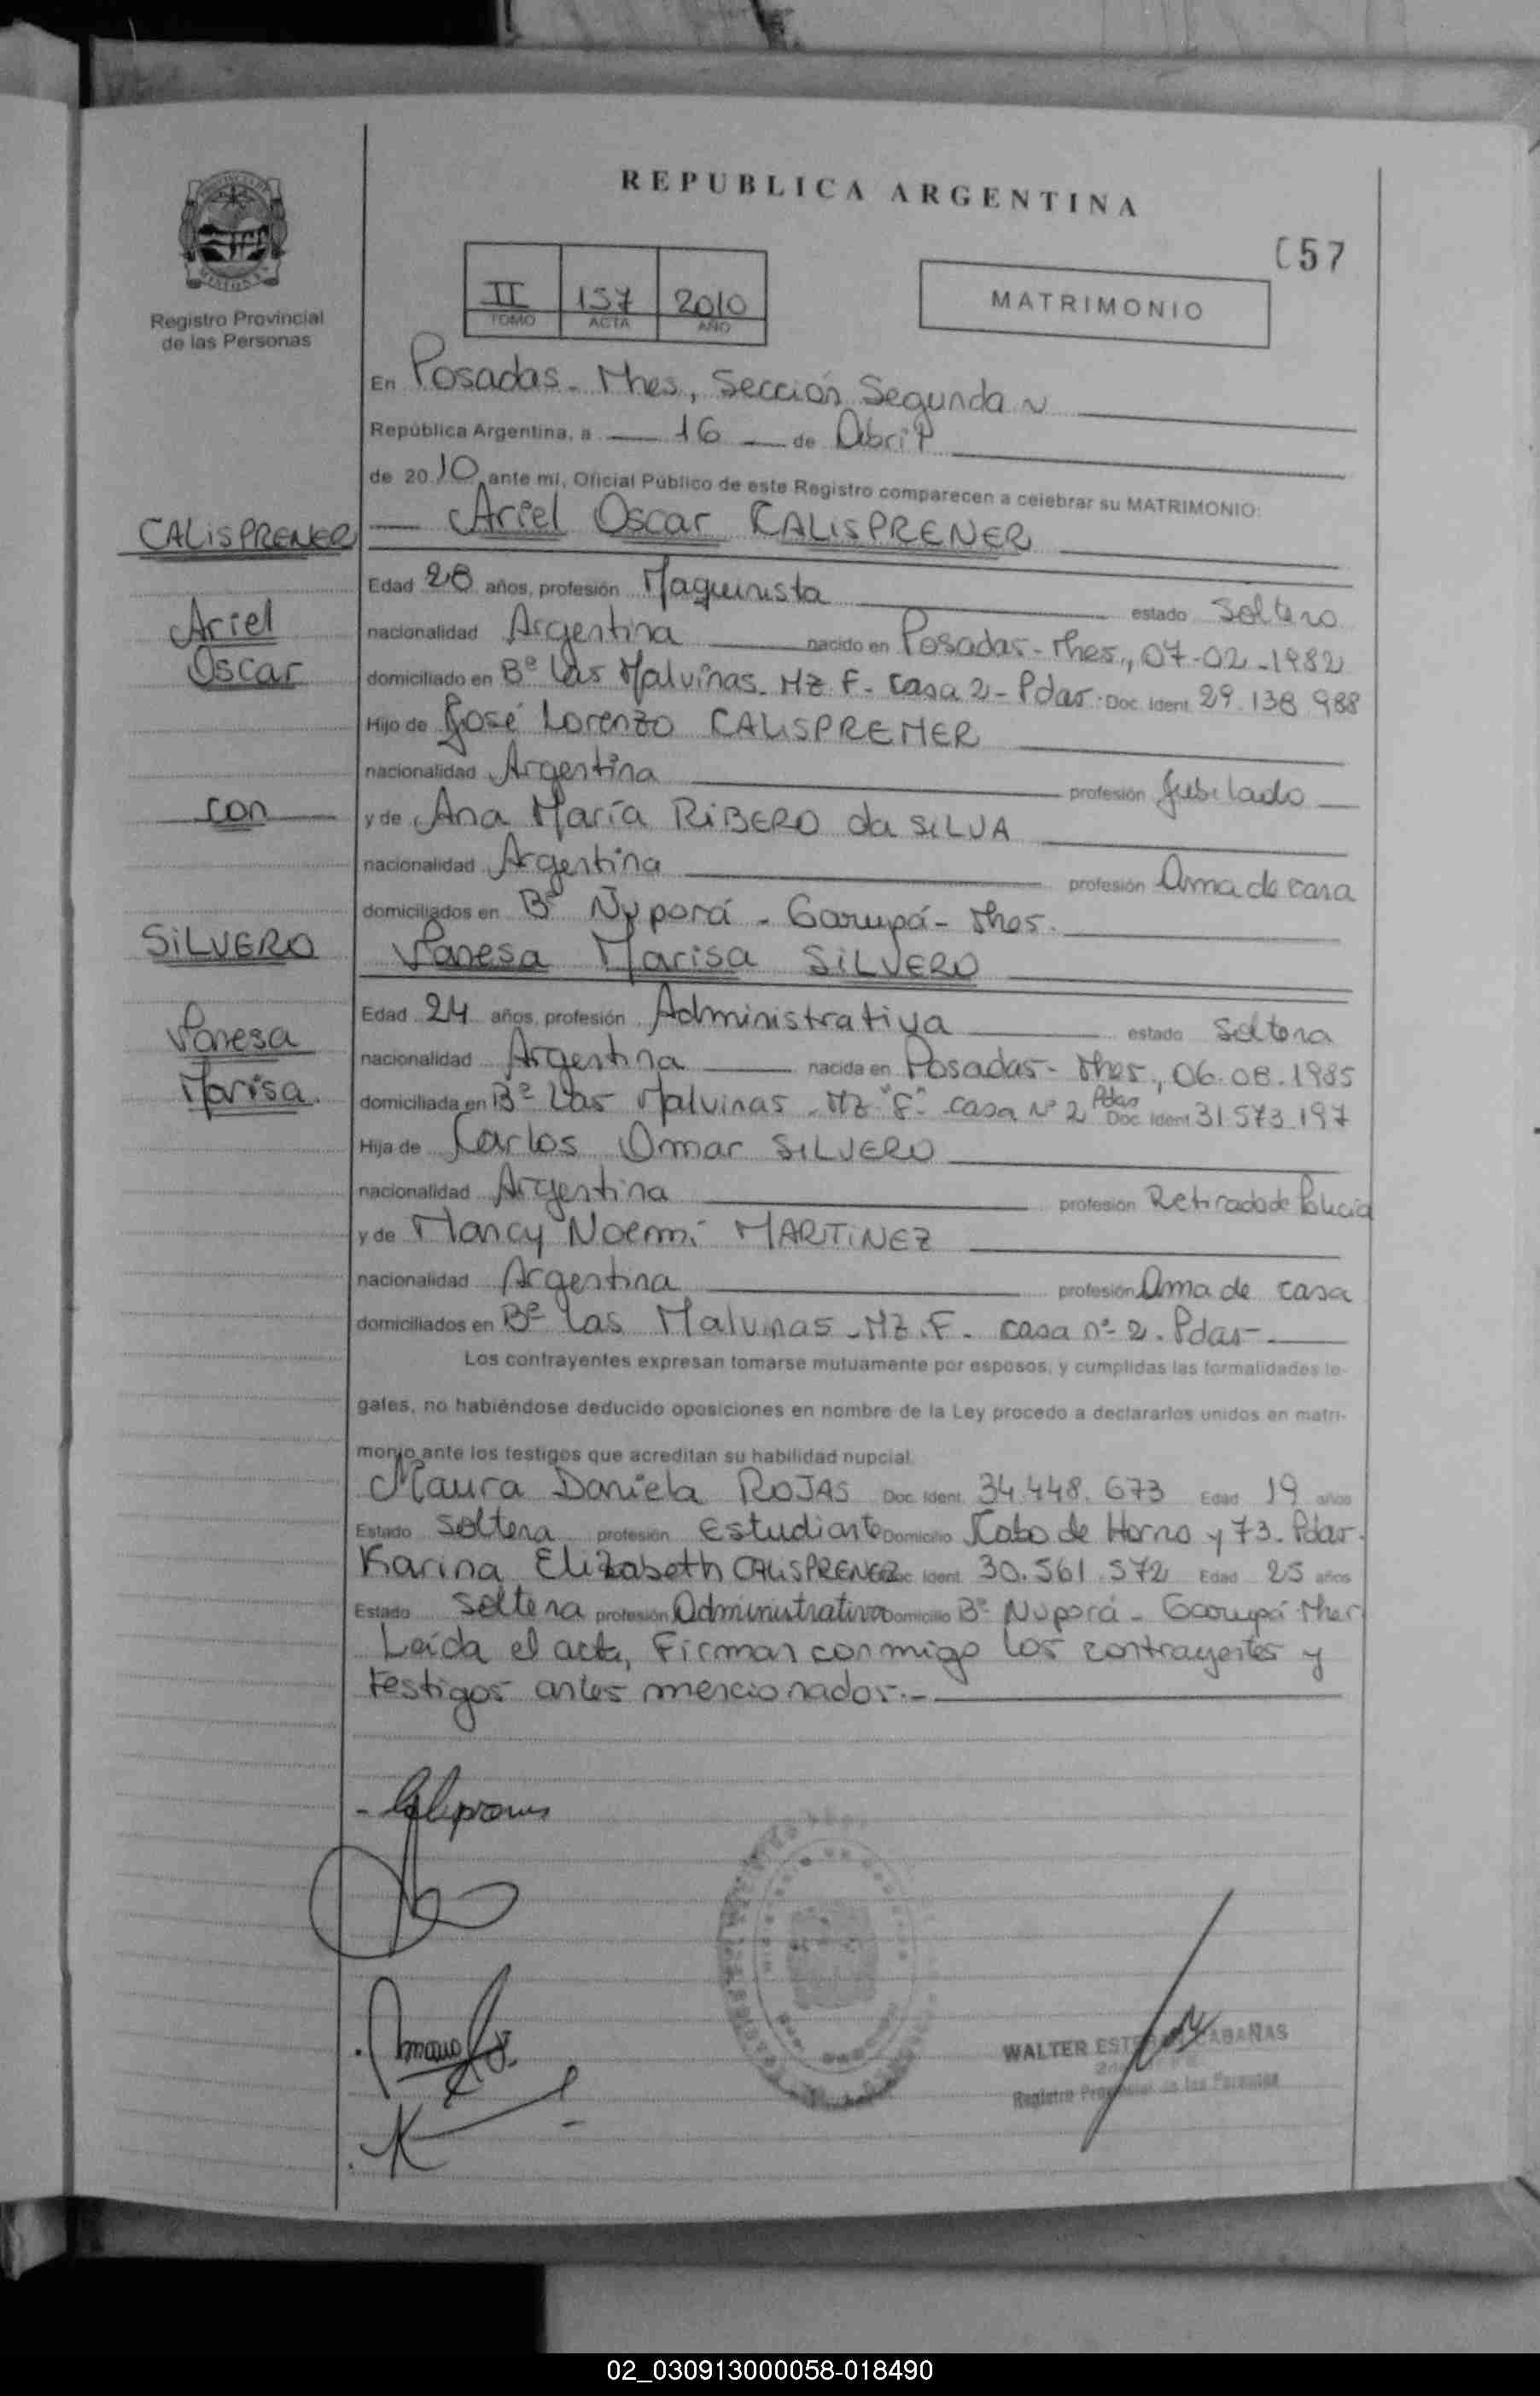 REPUBLICA ARGENTINA
C57
II 157 2010
TOMO ACTA AÑO
MATRIMONIO
Registro Provincial
de las Personas
En Posadas - Mnes, Sección Segunda
República Argentina, a 16 de Abril
de 2010, ante mí, Oficial Público de este Registro comparecen a celebrar su MATRIMONIO:
CALISPRENER
Ariel
Oscar
con
SILVERO
Vanesa
Marisa.
Ariel Oscar CALISPRENER
Edad 28 años, profesión Maquinista estado Soltero
nacionalidad Argentina nacido en Posadas - Mnes., 07-02-1982
domiciliado en Bº Las Malvinas - Mz F - Casa 2 - Pdas. Doc. Ident. 29.138.988
Hijo de José Lorenzo CALISPRENER
nacionalidad Argentina profesión Jubilado
y de Ana María RIBERO da SILVA
nacionalidad Argentina profesión Ama de casa
domiciliados en Bº Ñu porá - Garupá - Mnes.
Vanesa Marisa SILVERO
Edad 24 años, profesión Administrativa estado Soltera
nacionalidad Argentina nacida en Posadas - Mnes., 06.08.1985
domiciliada en Bº Las Malvinas - Mz "F" - casa Nº 2 Pdas Doc. Ident. 31.573.197
Hija de Carlos Omar SILVERO
nacionalidad Argentina profesión Retirado de Policia
y de Nancy Noemí MARTINEZ
nacionalidad Argentina profesión Ama de casa
domiciliados en Bº Las Malvinas - Mz. F - casa nº 2. Pdas
Los contrayentes expresan tomarse mutuamente por esposos, y cumplidas las formalidades le-
gales, no habiéndose deducido oposiciones en nombre de la Ley procedo a declararlos unidos en matri-
monio ante los testigos que acreditan su habilidad nupcial.
Maura Daniela ROJAS Doc. Ident. 34.448.673 Edad 19 años
Estado Soltera profesión Estudiante Domicilio Cabo de Horno y 73. Pdas.
Karina Elizabeth CALISPRENER Doc. Ident. 30.561.572 Edad 25 años
Estado Soltera profesión Administrativa Domicilio Bº Ñuporá - Garupá Mnes
Leída el acta, Firman conmigo los contrayentes y
testigos antes mencionados.-
WALTER ESTEBAN CABAÑAS
Registro Provincial de las Personas
02_030913000058-018490